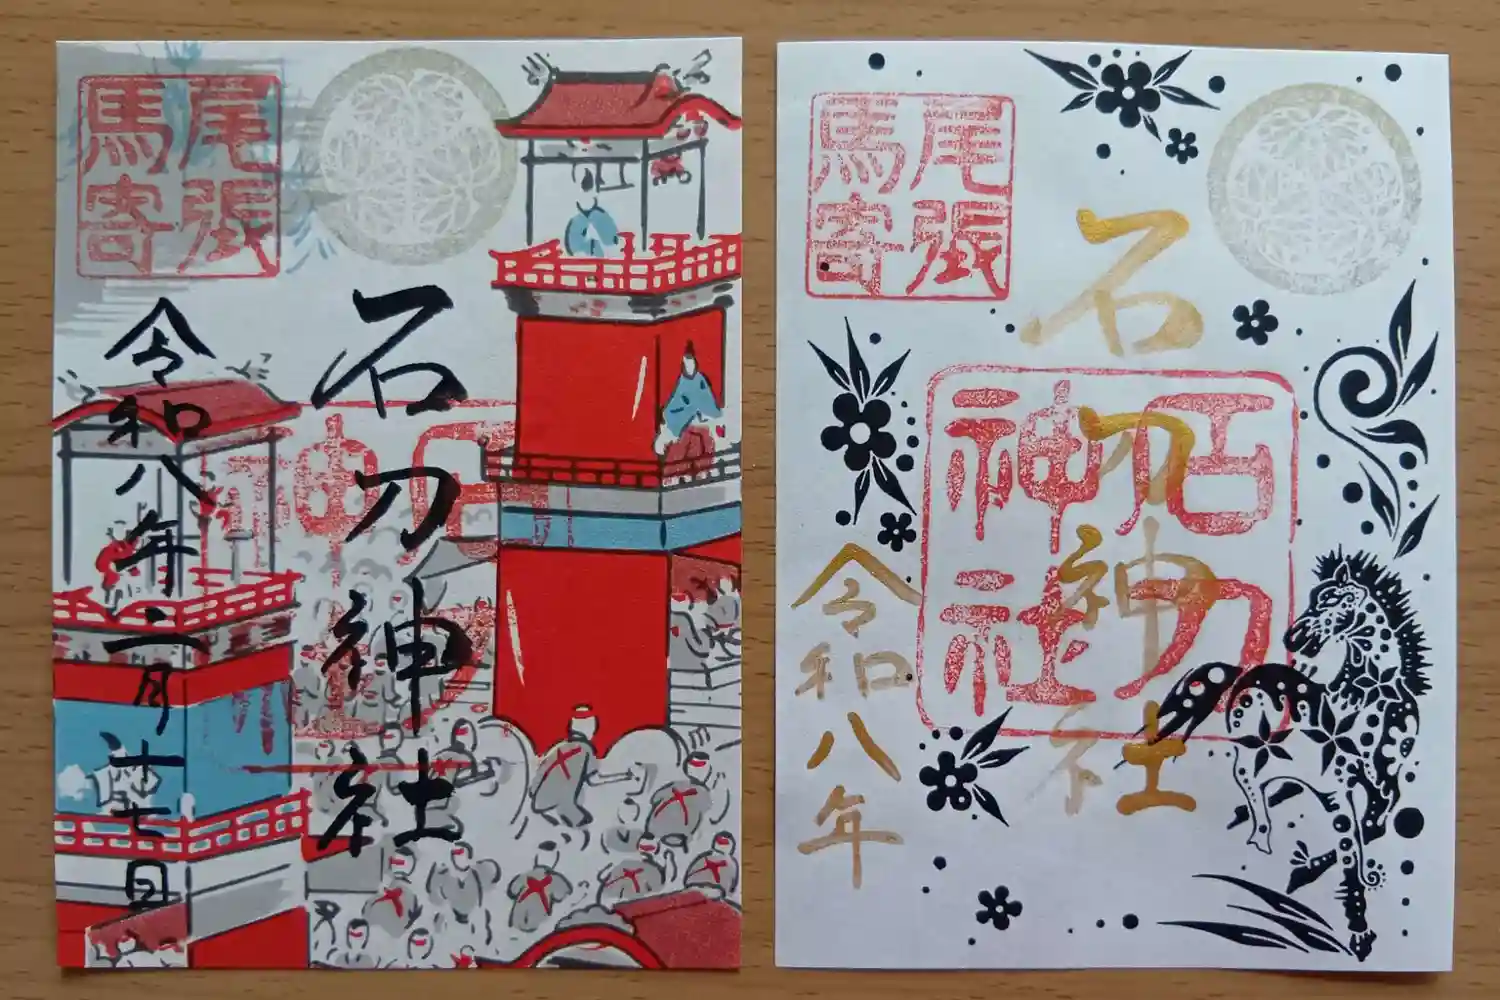 尾張
馬寄
石刀神社
石刀
神社
令和八年二月十七日
尾張
馬寄
石刀神社
石刀
神社
令和八年